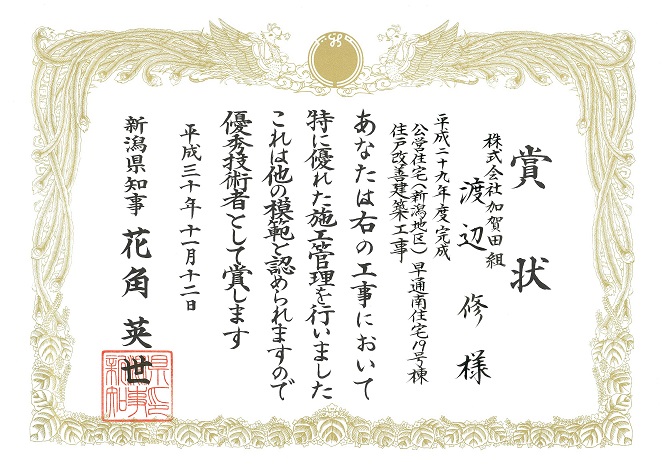 賞状
株式会社加賀田組
渡辺 修 様
平成二十九年度完成
公営住宅(新潟地区)早通南住宅19号棟
住戸改善建築工事
あなたは右の工事において
特に優れた施工管理を行いました
これは他の模範と認められますので
優秀技術者として賞します
平成三十年十一月十二日
新潟県知事 花角英世
新潟県知事之印